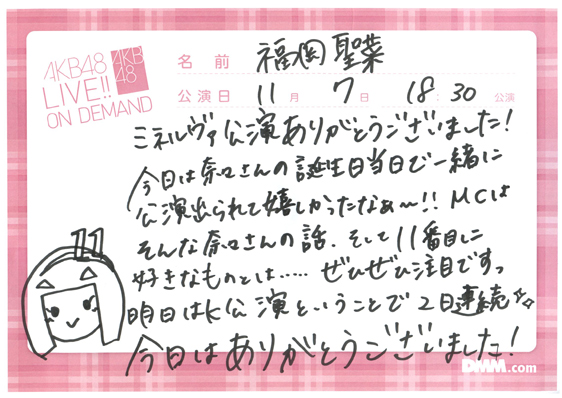 AKB48
LIVE!!
ON DEMAND
AKB
48
名前 福岡聖菜
公演日 11月 7日 18:30 公演
ミネルヴァ公演ありがとうございました!
今日は奈々さんの誕生日当日で一緒に
公演出られて嬉しかったなぁ〜!! MCは
そんな奈々さんの話、そして11番目に
好きなものとは…… ぜひぜひ注目ですっ
明日はK公演ということで2日連続☆☆
今日はありがとうございました!
11
DMM.com